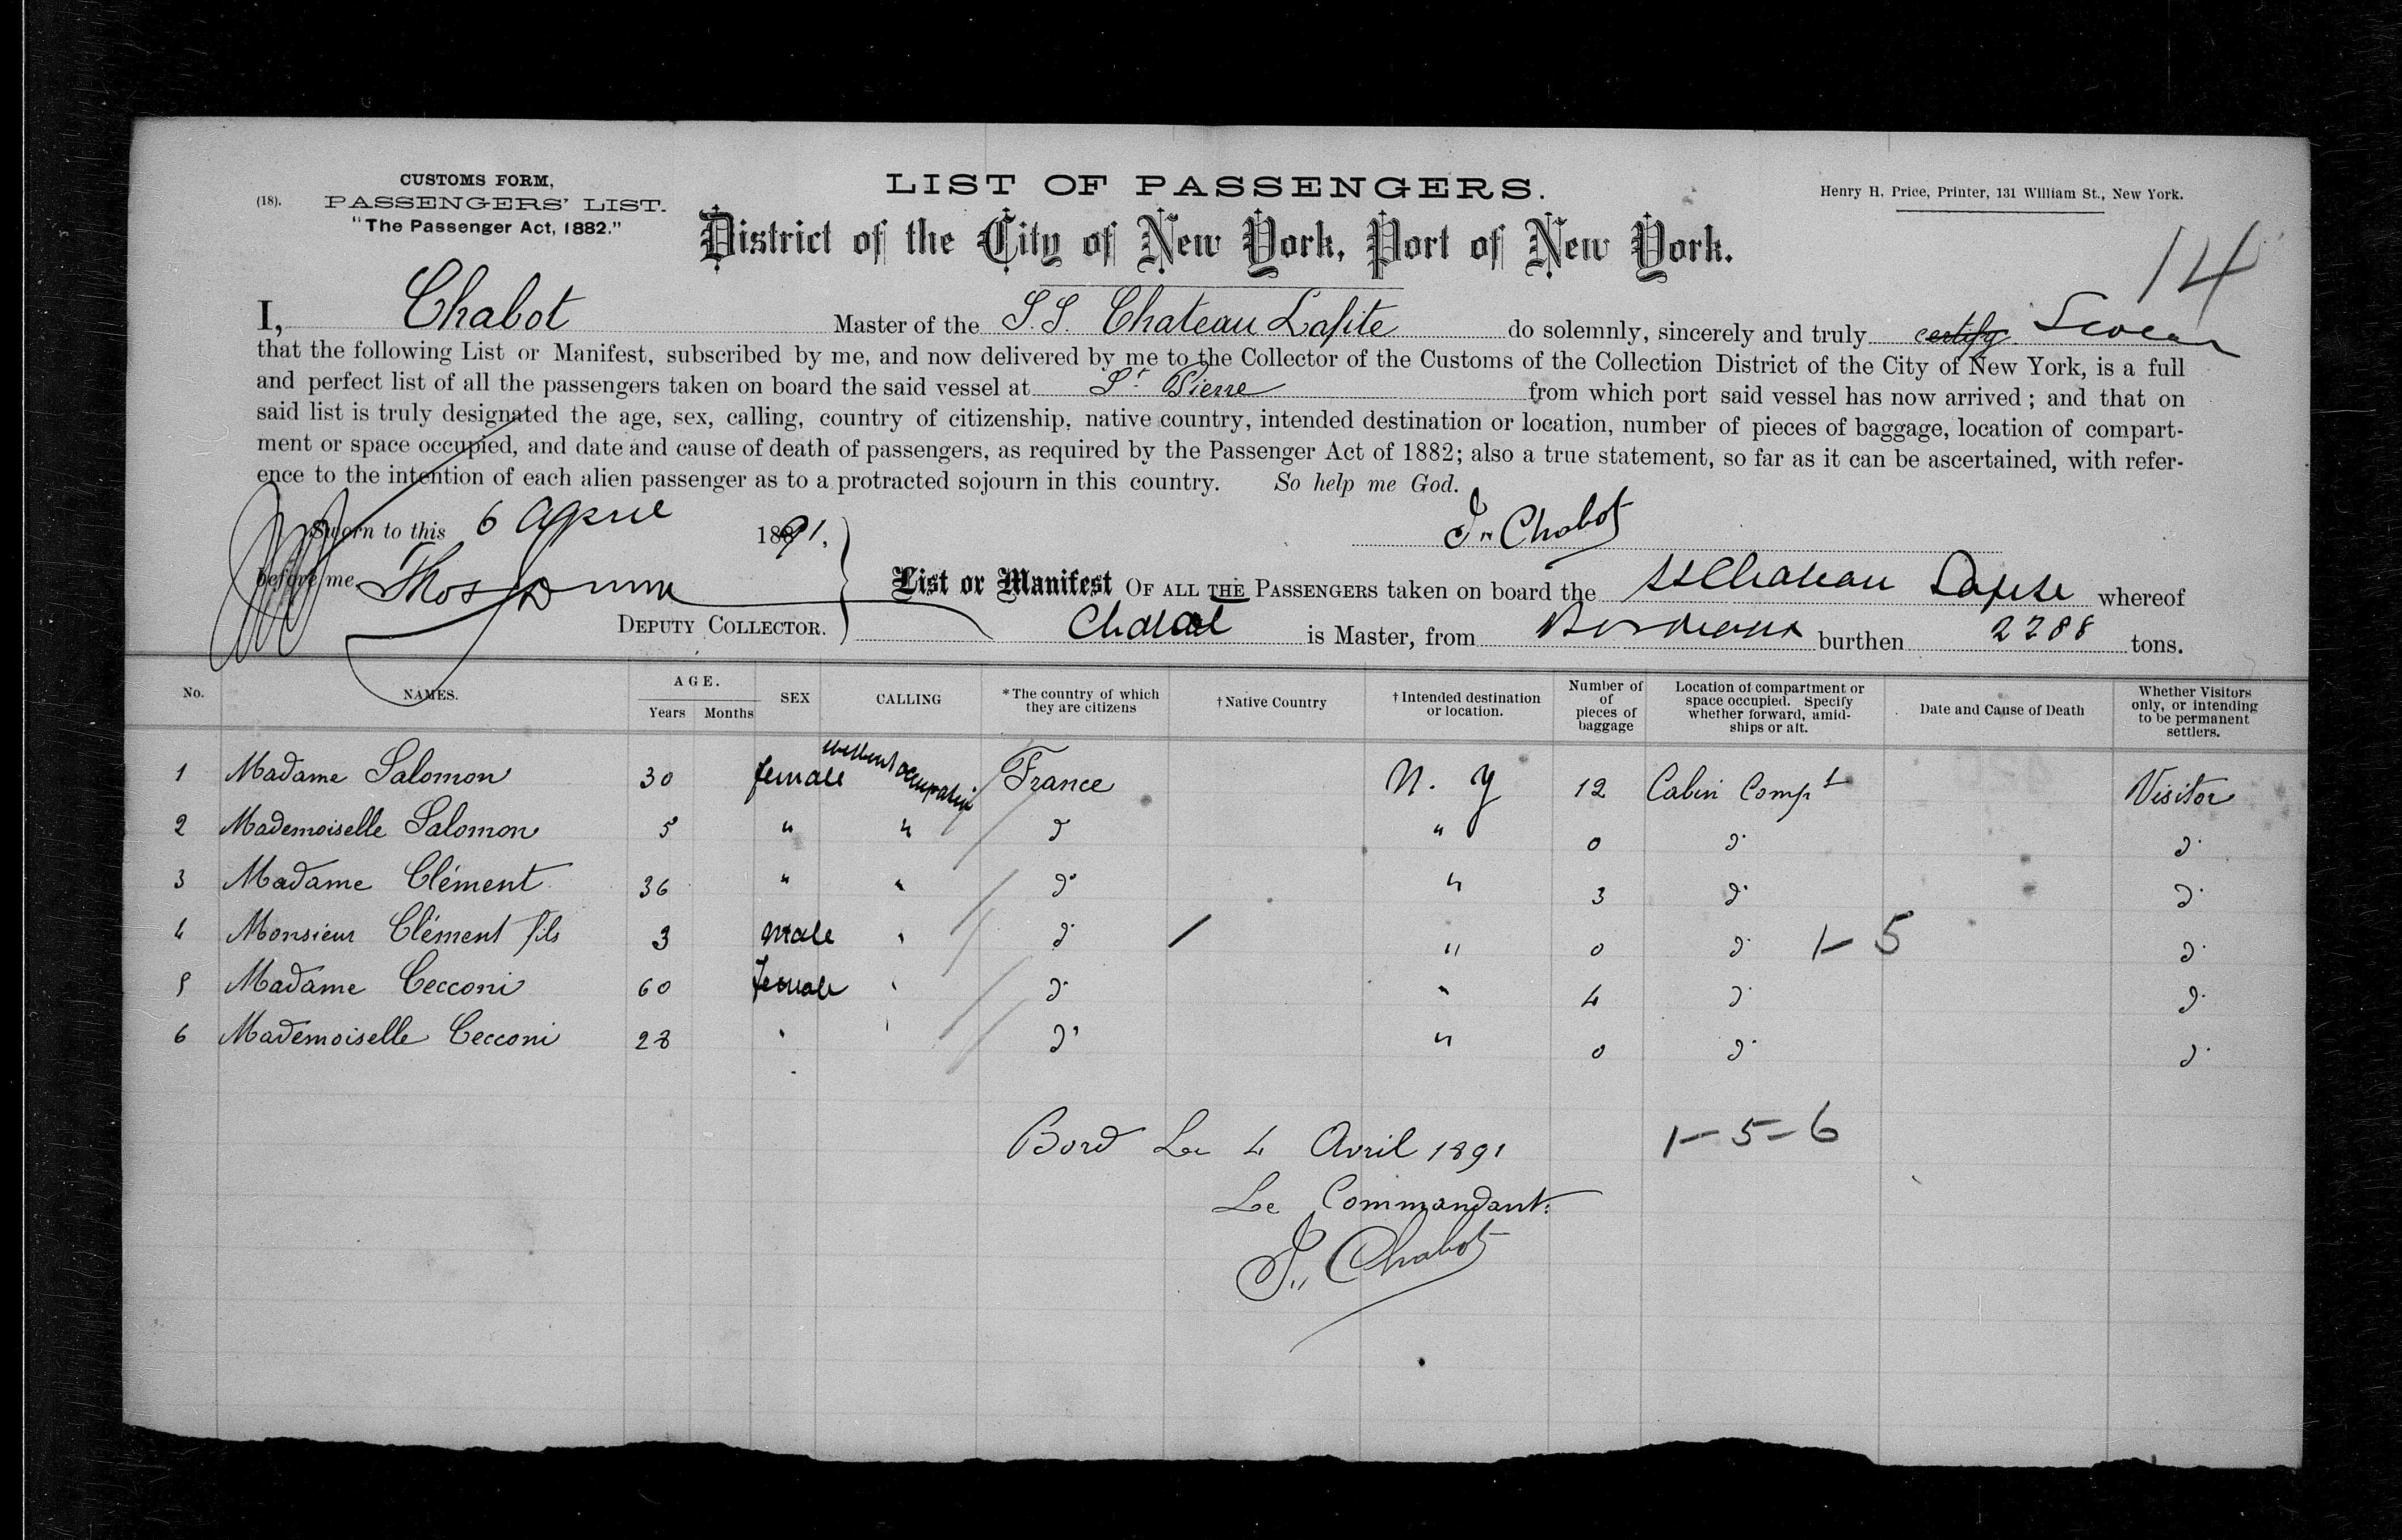 CUSTOMS FORM,
(18). PASSENGERS' LIST.
"The Passenger Act, 1882."
LIST OF PASSENGERS.
Henry H. Price, Printer, 131 William St., New York.
District of the City of New York, Port of New York.
14
I, Chabot Master of the S.S. Chateau Lafite do solemnly, sincerely and truly certify Swear
that the following List or Manifest, subscribed by me, and now delivered by me to the Collector of the Customs of the Collection District of the City of New York, is a full
and perfect list of all the passengers taken on board the said vessel at St. Pierre from which port said vessel has now arrived; and that on
said list is truly designated the age, sex, calling, country of citizenship, native country, intended destination or location, number of pieces of baggage, location of compart-
ment or space occupied, and date and cause of death of passengers, as required by the Passenger Act of 1882; also a true statement, so far as it can be ascertained, with refer-
ence to the intention of each alien passenger as to a protracted sojourn in this country. So help me God.
Sworn to this 6 April 1891,
J. Chabot
before me Thos Dunn
DEPUTY COLLECTOR.
List or Manifest OF ALL THE PASSENGERS taken on board the SS Chateau Lafite whereof
Chabot is Master, from Bordeaux burthen 2288 tons.
No. NAMES. AGE. Years Months SEX CALLING *The country of which they are citizens †Native Country †Intended destination or location. Number of of pieces of baggage Location of compartment or space occupied. Specify whether forward, amid-ships or aft. Date and Cause of Death Whether Visitors only, or intending to be permanent settlers.
1 Madame Salomon 30 female without occupation France N. Y 12 Cabin Compt Visitor
2 Mademoiselle Salomon 5 " " d " 0 d d
3 Madame Clément 36 " " do " 3 do d
4 Monsieur Clément fils 3 male " d " 0 d 1-5 d
5 Madame Cecconi 60 female " d " 4 d d
6 Mademoiselle Cecconi 28 " " do " 0 d d
Bord Le 4 Avril 1891
1-5-6
Le Commandant:
J. Chabot